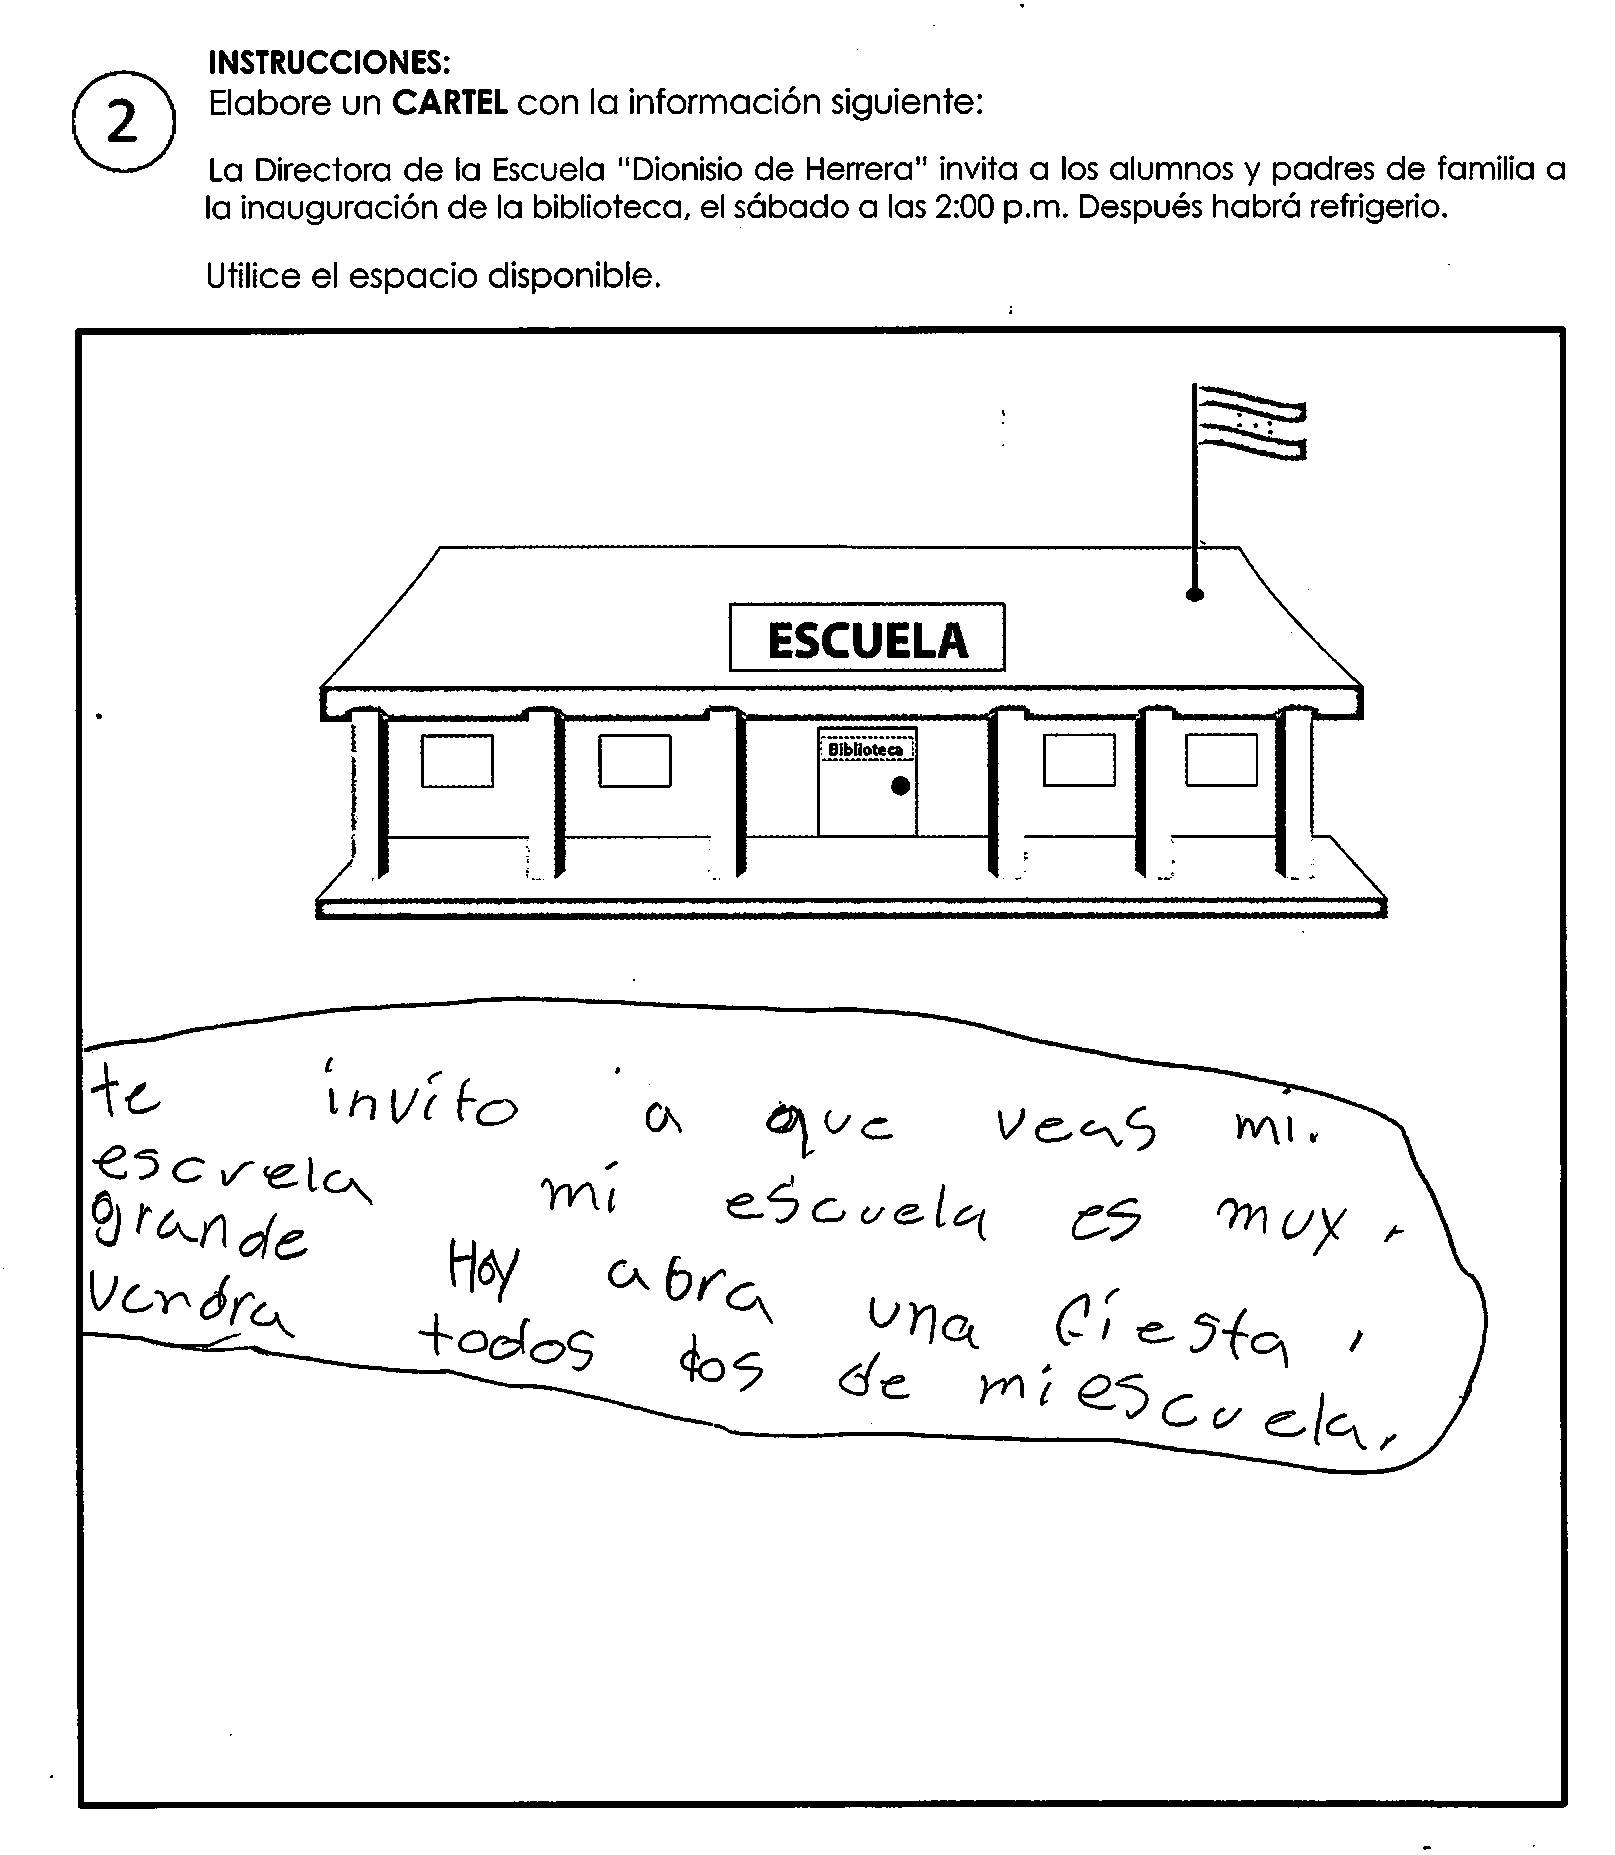 INSTRUCCIONES:
2
Elabore un CARTEL con la información siguiente:
La Directora de la Escuela "Dionisio de Herrera" invita a los alumnos y padres de familia a
la inauguración de la biblioteca, el sábado a las 2:00 p.m. Después habrá refrigerio.
Utilice el espacio disponible.
ESCUELA
Biblioteca
te invito a que veas mi.
escuela mi escuela es muy.
grande Hoy abra una fiesta,
vendra todos los de mi escuela.